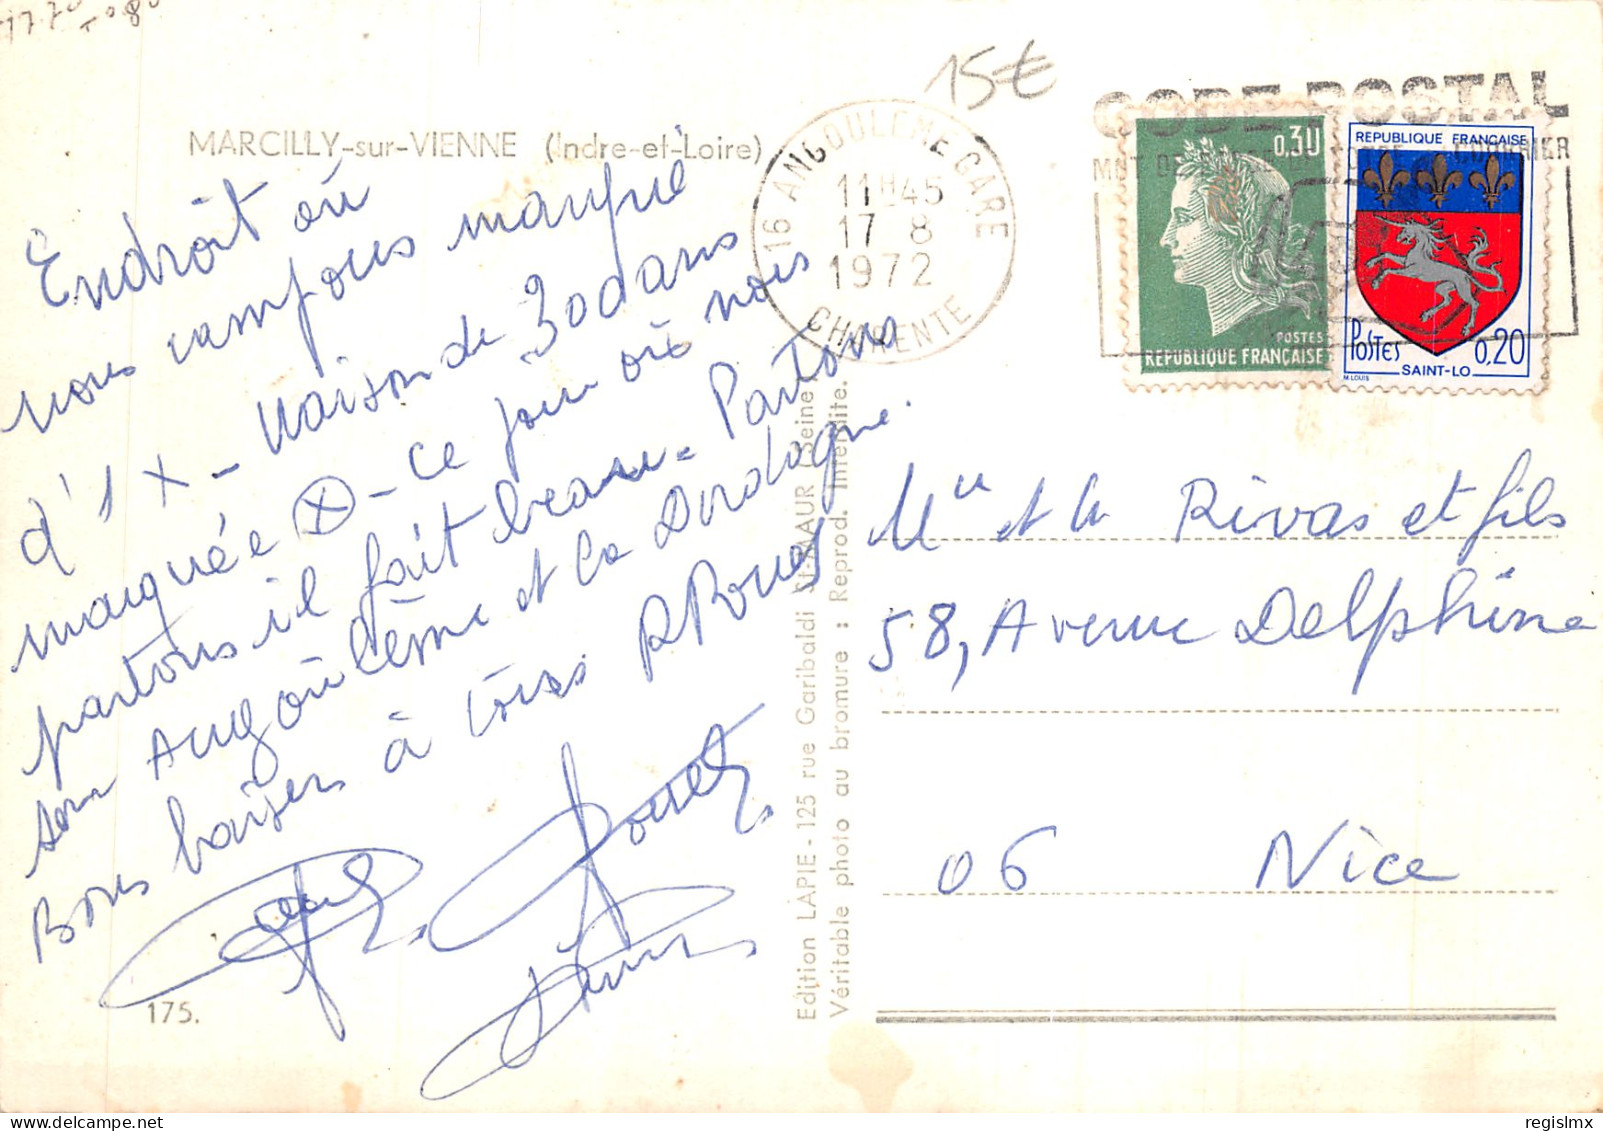 15€
MARCILLY-sur-VIENNE (Indre-et-Loire)
Endroit où
nous campons marqué
d'1 X - Maison de 300 ans
marquée Ⓧ - ce jour où nous
partons il fait beau - Partons
sur Angoulême et la Dordogne.
Bons baisers à tous
175.
16 ANGOULEME GARE
11H45
17 8
1972
CHARENTE
CODE POSTAL
MOT DE
COURRIER
0,30
POSTES
REPUBLIQUE FRANÇAISE
REPUBLIQUE FRANÇAISE
POSTES 0,20
SAINT-LO
M.LOUIS
Edition LAPIE - 125 rue Garibaldi St-MAUR (Seine)
Véritable photo au bromure : Reprod. Interdite.
Mr et Rivas et fils
58, Avenue Delphine
06 Nice
regislmx